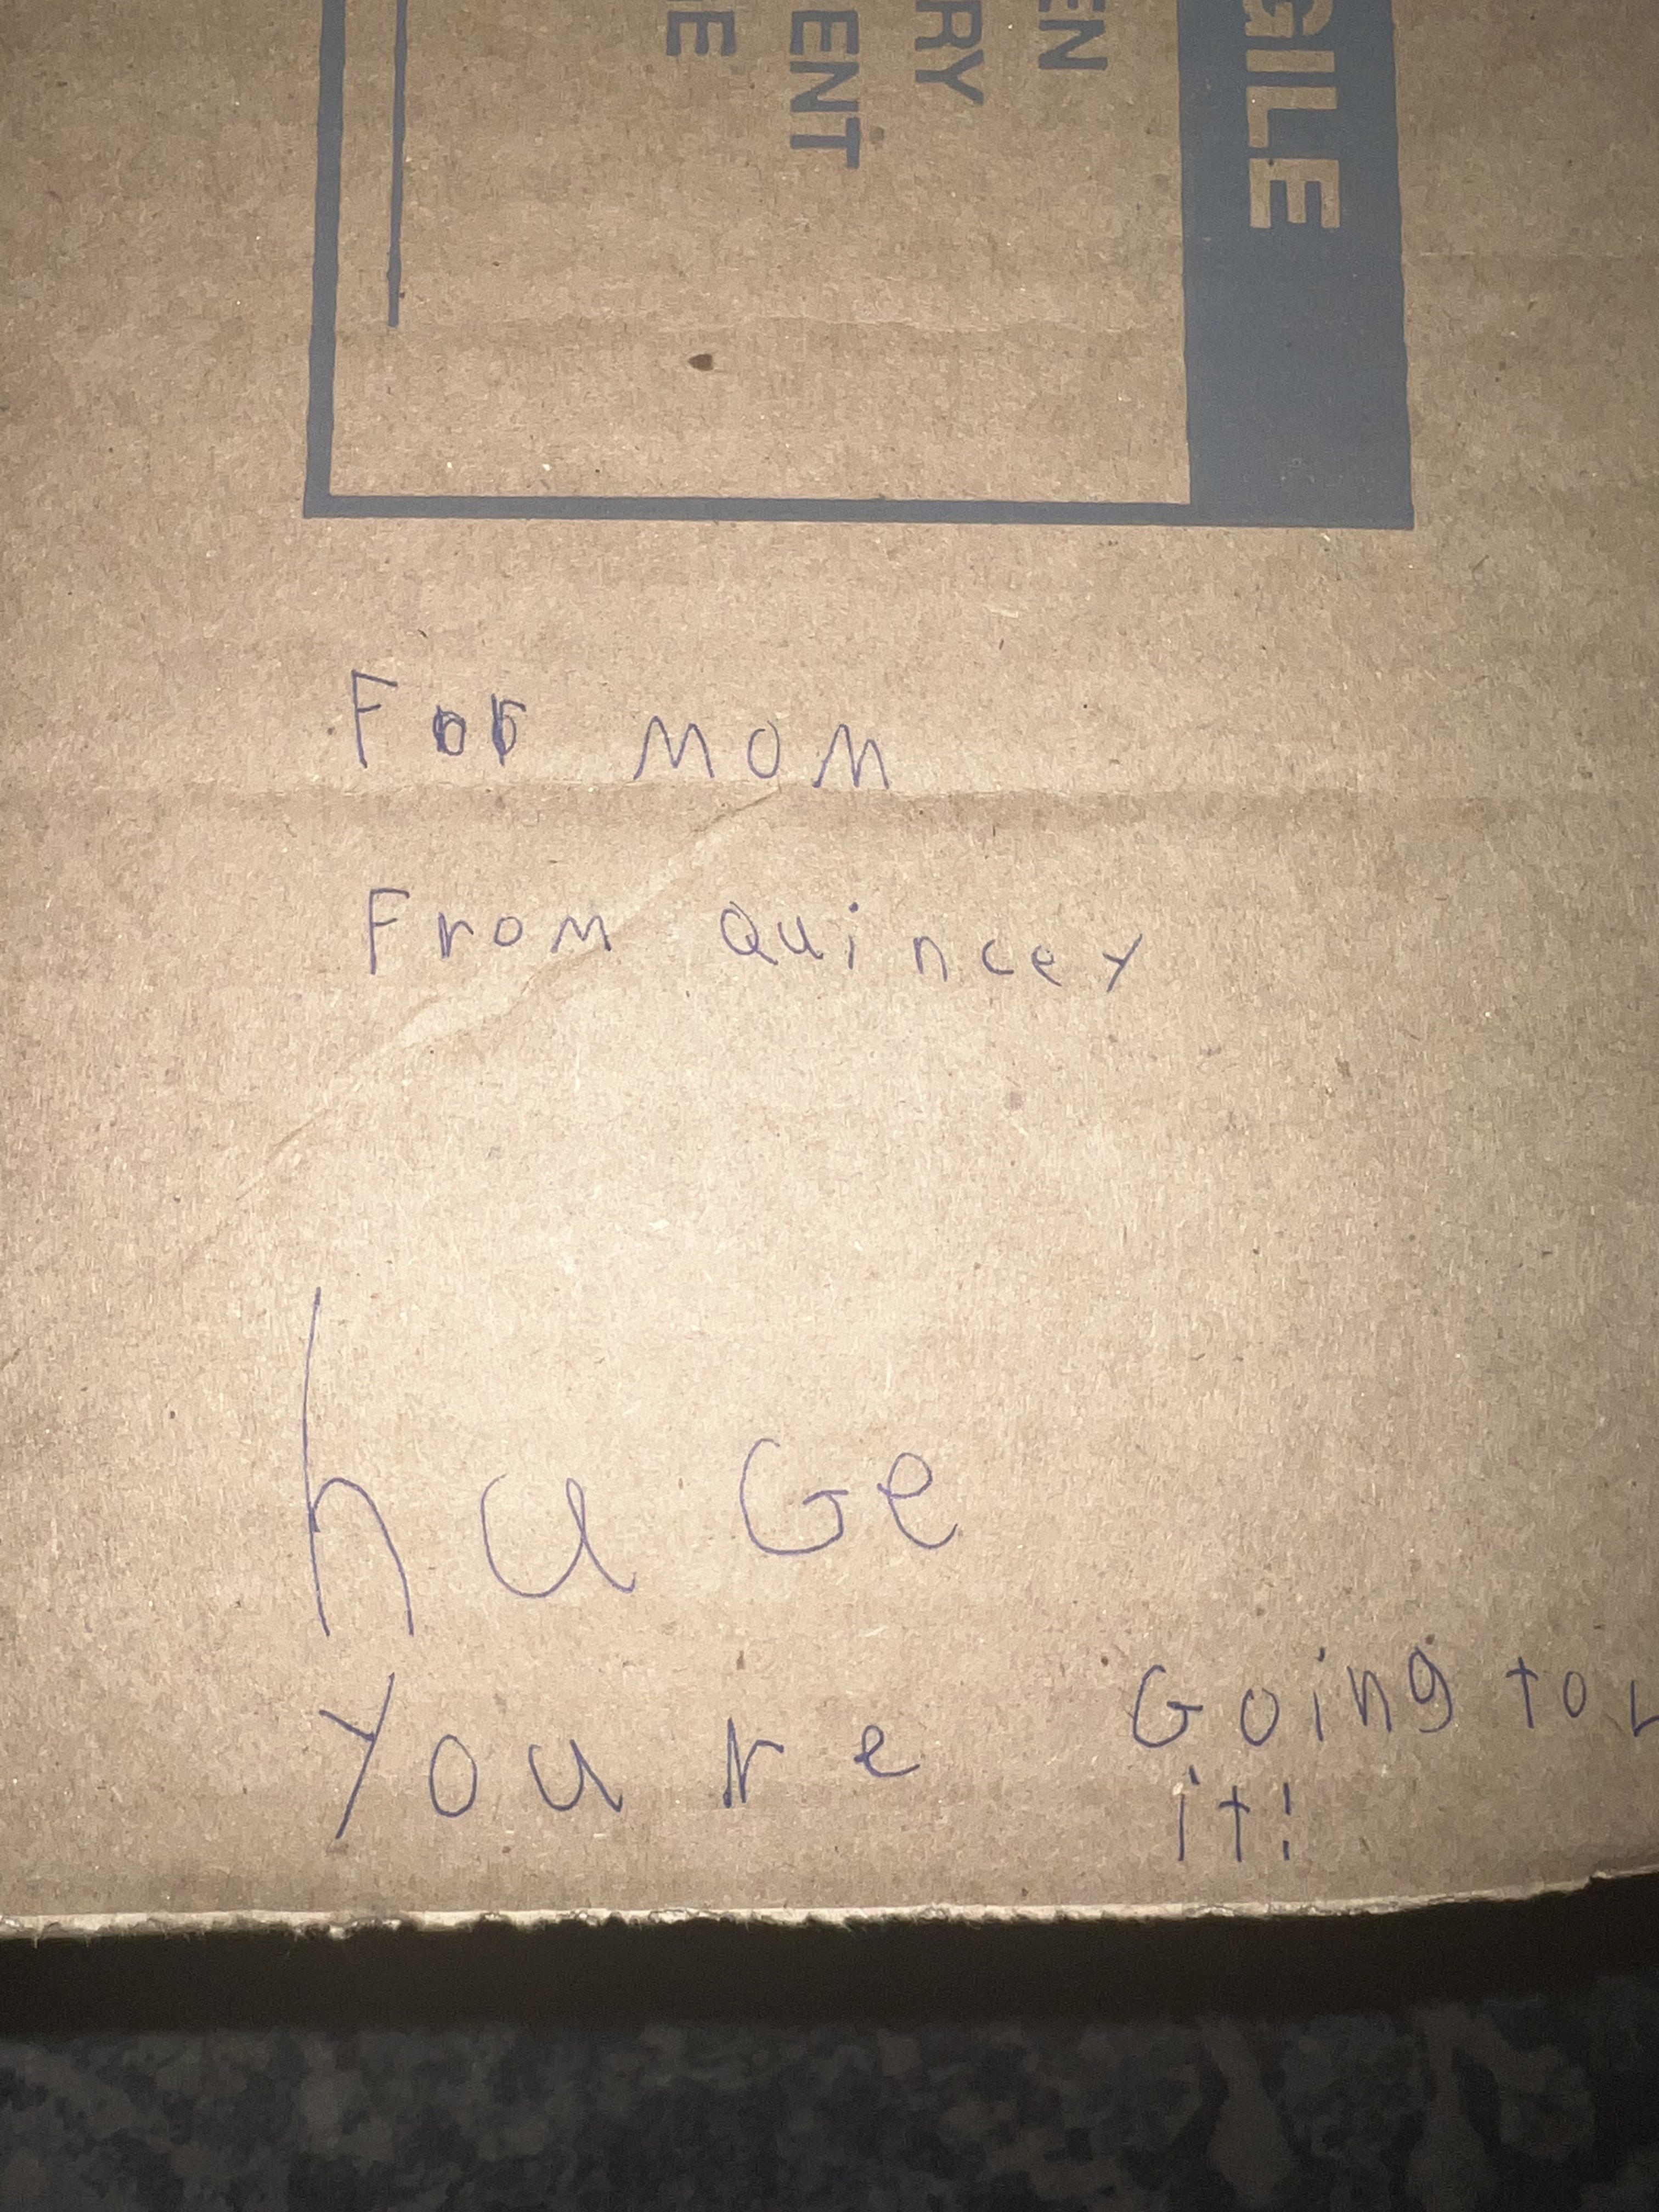 GILE
EN
RY
ENT
E
For mom
From Quincey
huGe
Youre Going to
it!